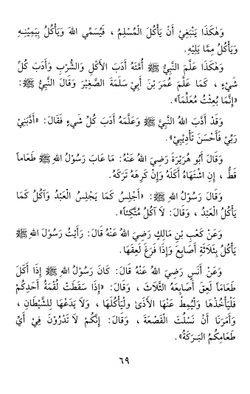 وَهَكَذَا يَنْبَغِيْ أَنْ يَأْكُلَ الْمُسْلِمُ ، فَيُسَمِّي اللهَ وَيَأْكُلُ بِيَمِيْنِـهِ
وَيَأْكُلُ مِمَّا يَلِيْهِ.
وَهَكَذَا عَلَّمَ النَّبِيُّ ﷺ أُمَّتَهُ أَدَبَ الأَكْلِ وَالشُّرْبِ وَأَدَبَ كُلِّ
شَيْءٍ ، كَمَا عَلَّمَ عُمَرَ بْنَ أَبِي سَلَمَةَ الصَّغِيْرَ وَقَالَ النَّبِيُّ ﷺ:
«إِنَّمَا بُعِثْتُ مُعَلِّماً».
وَقَدْ أَدَّبَ اللهُ النَّبِيَّ ﷺ وَعَلَّمَهُ أَدَبَ كُلِّ شَيْءٍ فَقَالَ: «أَدَّبَنِيْ
رَبِّيْ فَأَحْسَنَ تَأْدِيْبِيْ».
وَقَالَ أَبُو هُرَيْرَةَ رَضِيَ اللهُ عَنْهُ: مَا عَابَ رَسُوْلُ اللهِ ﷺ طَعَاماً
قَطُّ ، إِنِ اشْتَهَاهُ أَكَلَهُ وَإِنْ كَرِهَهُ تَرَكَهُ.
وَقَالَ رَسُوْلُ اللهِ ﷺ: «أَجْلِسُ كَمَا يَجْلِسُ الْعَبْدُ وَآكُلُ كَمَا
يَأْكُلُ الْعَبْدُ ، وَقَالَ: لَا آكُلُ مُتَّكِئاً».
وَعَنْ كَعْبِ بْنِ مَالِكٍ رَضِيَ اللهُ عَنْهُ قَالَ: رَأَيْتُ رَسُوْلَ اللهِ ﷺ
يَأْكُلُ بِثَلَاثَةِ أَصَابِعَ وَإِذَا فَرَغَ لَعِقَهَا.
وَعَنْ أَنَسٍ رَضِيَ اللهُ عَنْهُ قَالَ: كَانَ رَسُوْلُ اللهِ ﷺ إِذَا أَكَلَ
طَعَاماً لَعِقَ أَصَابِعَهُ الثَّلَاثَ ، وَقَالَ: «إِذَا سَقَطَتْ لُقْمَةُ أَحَدِكُمْ
فَلْيَأْخُذْهَا وَلْيُمِطْ عَنْهَا الأَذَىٰ وَلْيَأْكُلْهَا ، وَلَا يَدَعْهَا لِلشَّيْطَانِ،
وَأَمَرَنَا أَنْ نَسْلُتَ الْقَصْعَةَ ، وَقَالَ: إِنَّكُمْ لَا تَدْرُوْنَ فِيْ أَيِّ
طَعَامِكُمُ الْبَـرَكَةُ».
٦٩